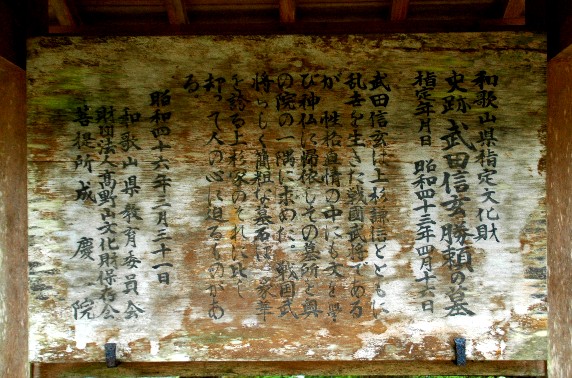 和歌山県指定文化財
史跡 武田信玄勝頼の墓
指定年月日 昭和四十三年四月十六日
武田信玄は上杉謙信とともに
乱世を生きた戦国武将である
が 性格直情の中にも文を学
び神仏に帰依しその墓所を奥
の院の一隅に求めた。戦国武
将らしく簡粗な墓石は 豪華
を誇る上杉家のそれに比し
却って人の心に迫るものがあ
る
昭和四十六年三月三十一日
和歌山県教育委員会
財団法人高野山文化財保存会
菩提所成慶院